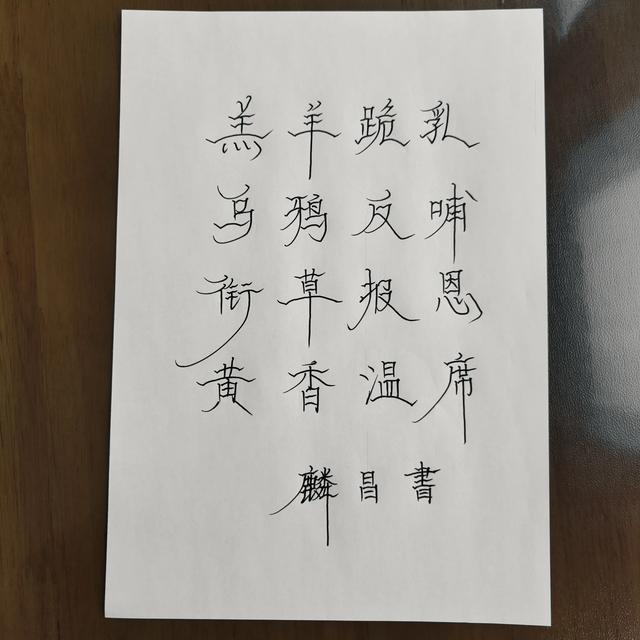 羔羊跪乳
乌鸦反哺
衔草报恩
黄香温席
麟昌書